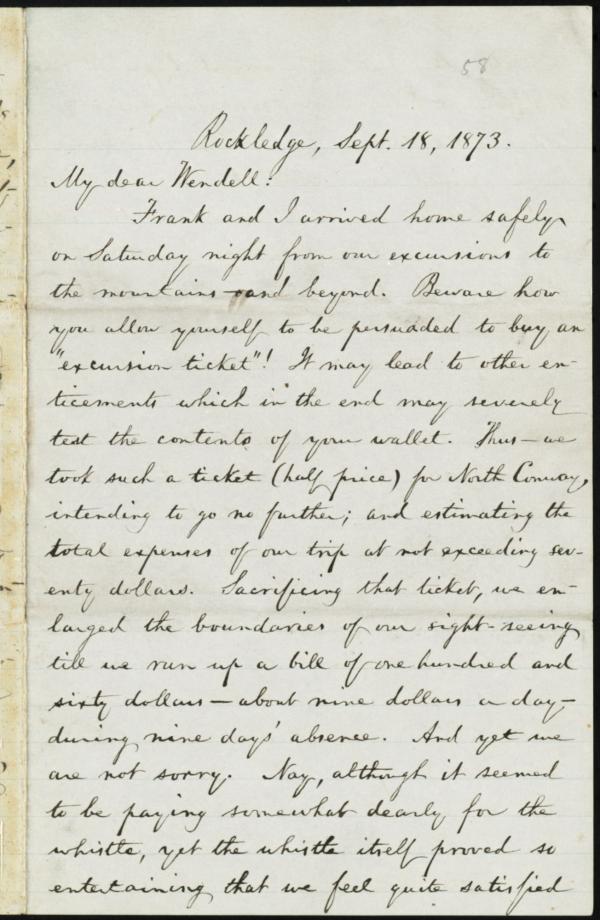 58
Rockledge, Sept. 18, 1873.
My dear Wendell:
Frank and I arrived home safely
on Saturday night from our excursions to
the mountains and beyond. Beware how
you allow yourself to be persuaded to buy an
"excursion ticket"! It may lead to other en-
ticements which in the end may severely
test the contents of your wallet. Thus — we
took such a ticket (half price) for North Conway,
intending to go no further; and estimating the
total expenses of our trip at not exceeding sev-
enty dollars. Sacrificing that ticket, we en-
larged the boundaries of our sight-seeing
till we run up a bill of one hundred and
sixty dollars — about nine dollars a day —
during nine days' absence. And yet we
are not sorry. Nay, although it seemed
to be paying somewhat dearly for the
whistle, yet the whistle itself proved so
entertaining that we feel quite satisfied